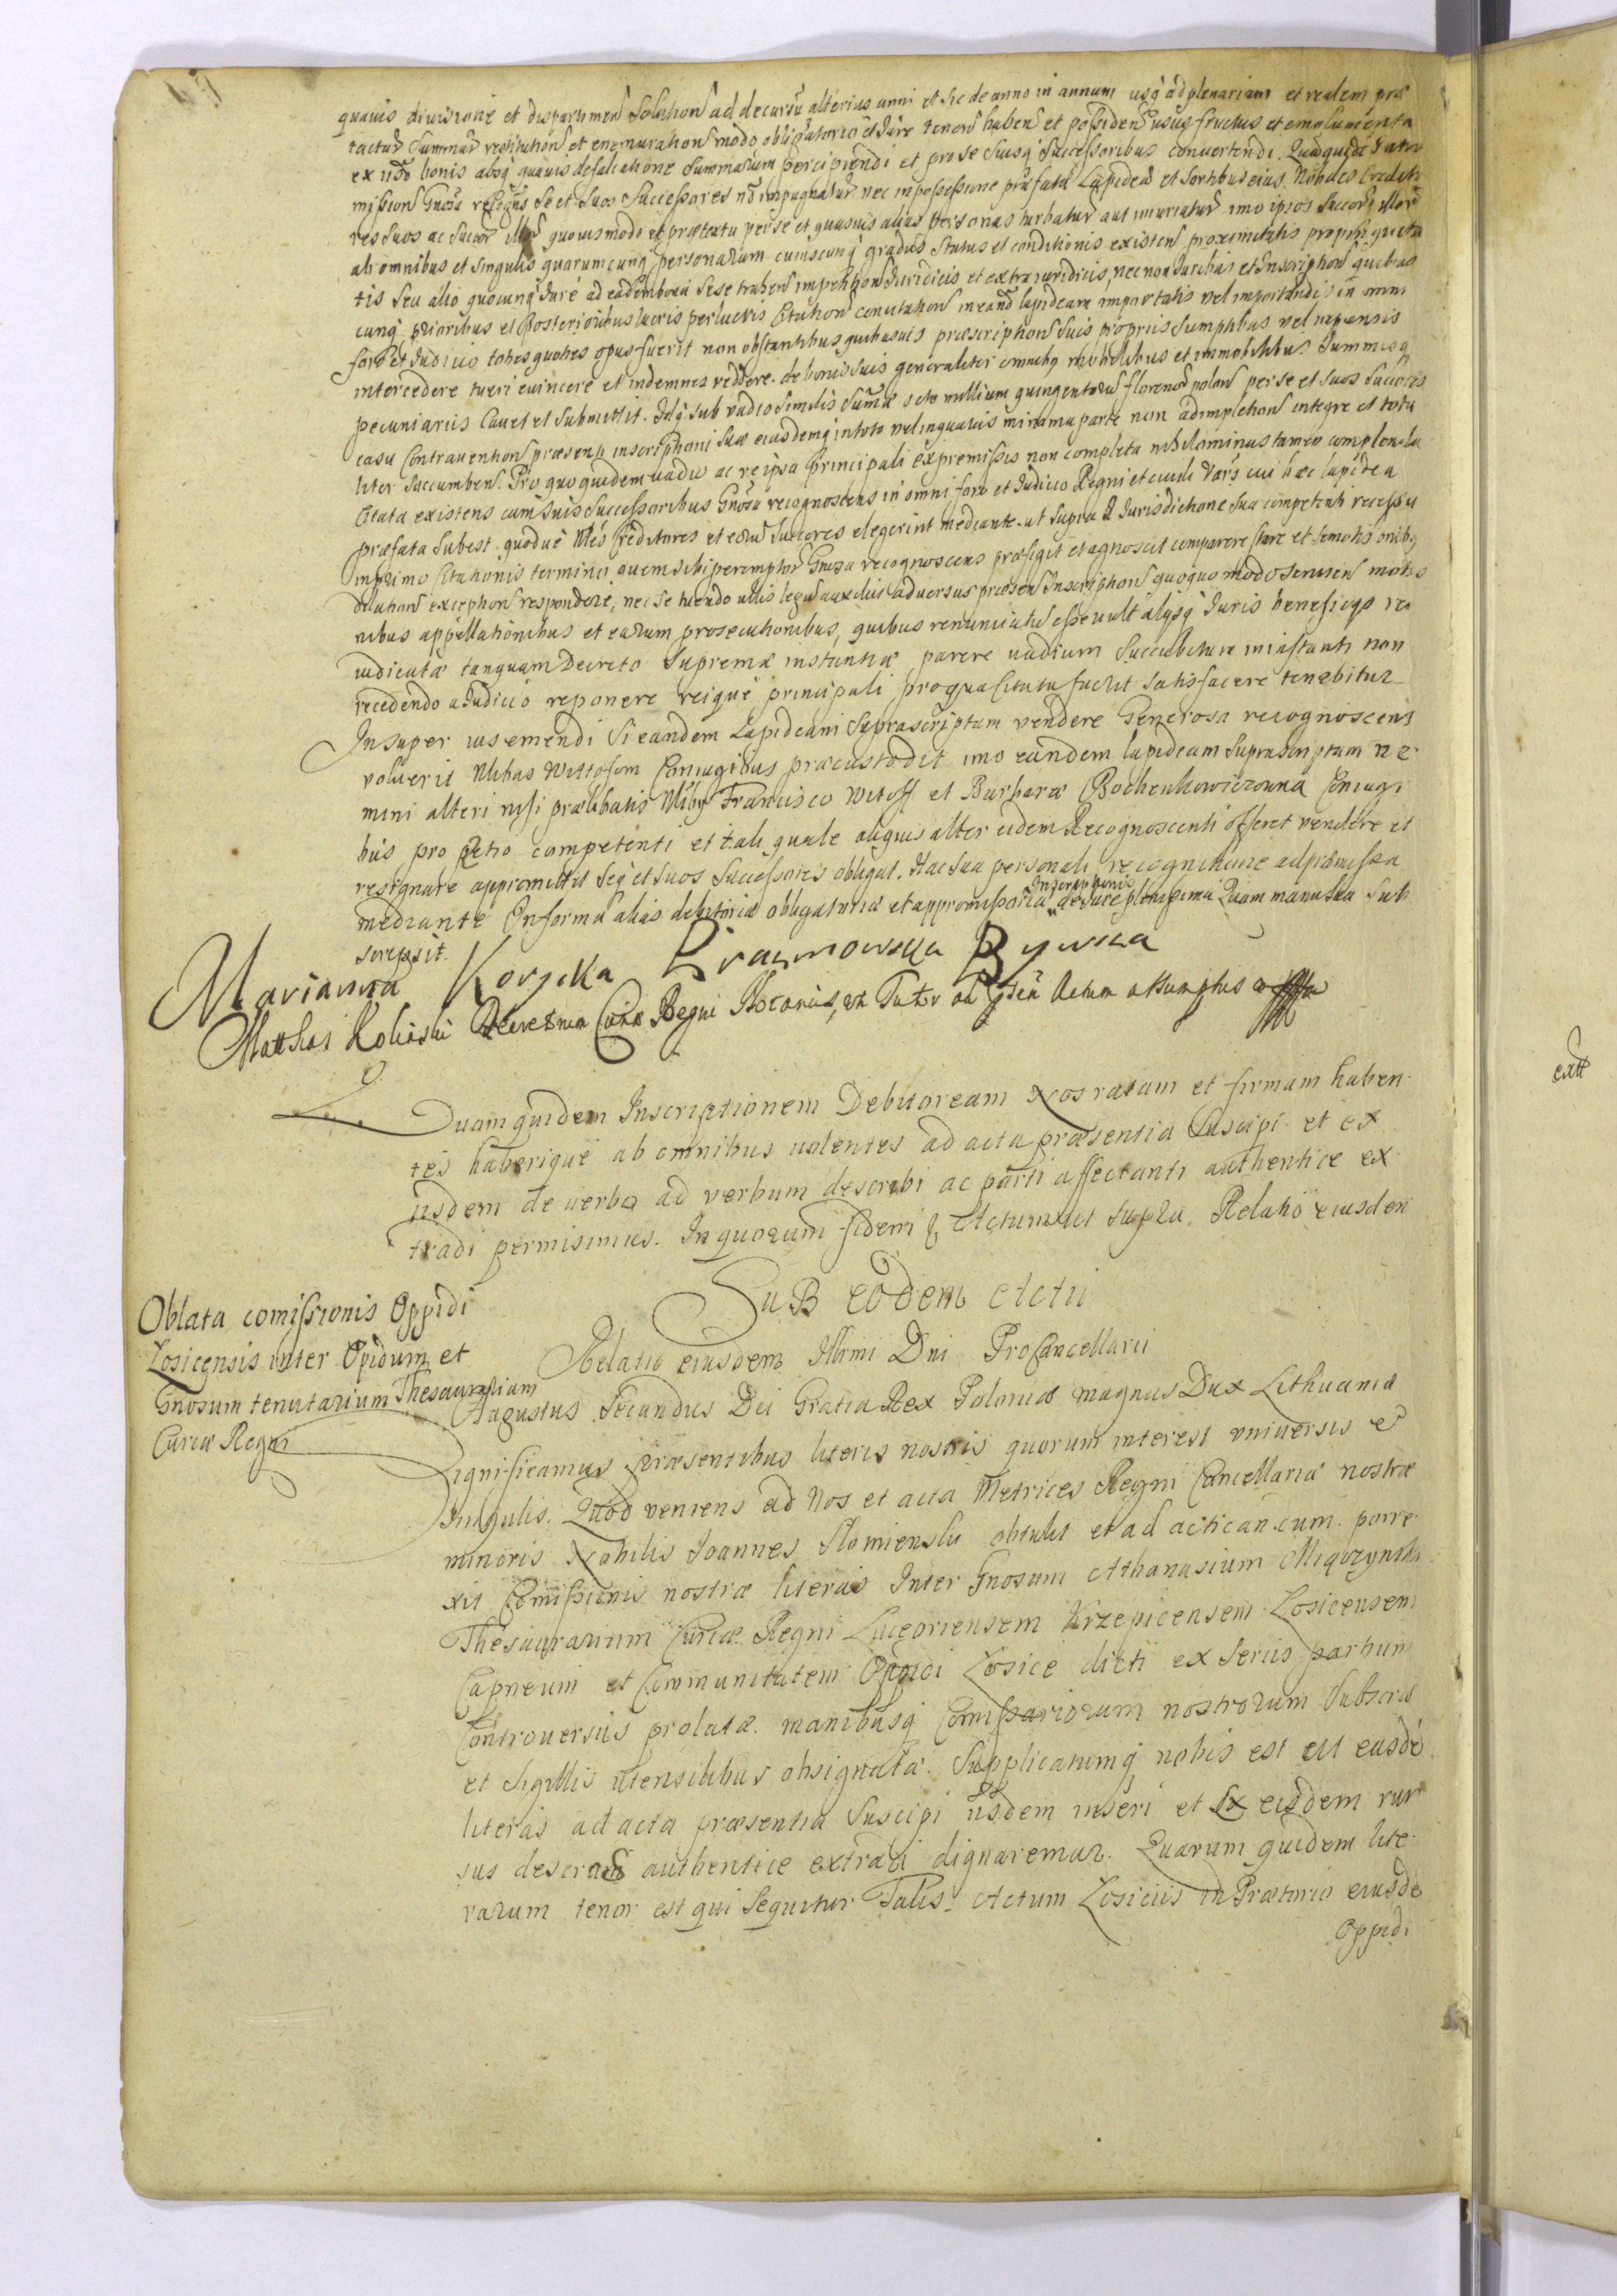 quavis divisione et dispartimen solution ad decursu alterius anni et sic de anno in annum usq ad plenariam et realem præ
tactar Summar restitution et enumeration modo obligatorio et Jure tenen haben et possiden usus fructus et emolumenta
ex iisde bonis absq quavis defalcatione Summarum percipiendi et pro se suisq Successoribus convertendi.
mission Gnosa recogns Se et Suos Successores impugnatur nec in possessione præfatæ Lapideæ et sortibus eius. Nobiles Credito
res suos ac succor illor quovis modo et prætextu per se et quasvis alias Personas turbatur aut iniuriatur imo ipsos Succorq illor
ab omnibus et singulis quarumcunq personarum cuiuscunq gradus status et conditionis existen proximitatis propinquita
tis seu alio quocunq Jure ad eadem bona sese trahen impetition Juridicis et extrajuridicis, nec non Juribus et Inscription quibus
cunq prioribus et Posterioribus lucris perlucris Citation in eand lapideam importatis vel importandis in omni
foro et Judicio toties quoties opus fuerit non obstantibus quibusvis præscription suis propriis sumptibus vel impensis
intercedere tueri evincere et indemnes reddere. de bonis suis generaliter omnibq mobilibus et immobilibus Summisq
pecuniariis Cavet et submittit. Idq sub vadio similis Sumæ octo millium quingentoru florenor polon per se et suos Succores
casu Contravention præsenti inscriptioni suæ eiusdemq in toto vel in quavis minima parte non adimpletion integre et tota
liter succumben. Pro quo quidem vadio ac re ipsa Principali ex premissis non completa nihilominus tamen complenda
Citata existens cum suis Successoribus Gnosa recognoscens in omni foro et Judicio Regni et civili Vars cui hæc lapidea
præfata subest. quodve Nles Creditores et eoru Succores elegerint mediante ut supra a Jurisdictione sua competenti recessu
in primo Citationis termino quem sibi peremptor Gnosa recognoscens præfigit et agnoscit comparere stare et semotis onibq
dilation exception respondere, nec se tuendo ullis legu auxiliis adversus præsen Inscription quoquo modo servien motis
nibus appellationibus et earum prosecutionibus, quibus renunciatu esse vult alysq Juris beneficys re
iudicatæ tanquam Decreto supremæ instantiæ parere vadium succubituræ in instanti non
recedendo a Judicio reponere reique principali pro qua Citata fuerit satisfacere tenebitur
Insuper ius emendi Si eandem Lapideam Suprascriptam vendere Generosa recognoscens
voluerit Nlibus Wittofom Coniugibus præcustodit imo eandem lapideam suprascriptam ne
mini alteri nisi prælibatis Nlibq Francisco Witoff et Barbaræ Bochenkowiczowna Coniugi
bus pro pretio competenti et tali quale aliquis alter eidem Recognoscenti offeret vendere et
resignare appromittit seq et suos Successores obligat. Hac sua personali recognitione ad præmissa
mediante In forma alias debitoriæ obligatoriæ et appromissoriæ Inscriptionis de Jure plenissima Quam manu sua sub
scripsit.
Marianna Korycka
Matthias Roliński Decretorum Curiæ Regni Notarius, ut Tutor ad Actum assumptus
Quam quidem Inscriptionem Debitoream Nos ratam et firmam haben
tes haberique ab omnibus volentes ad acta præsentia suscipi et ex
iisdem de verbo ad verbum describi ac parti affectanti authentice ex
tradi permisimus. In quorum fidem & Actum ut supra. Relatio eiusdem
Sub eodem Actu
Oblata comissionis Oppidi
Losicensis inter Opidum et
Gnosum tenutarium Thesaurarium
Curiæ Regni
Relatio eiusdem Illmi Dni ProCancellarii
Augustus Secundus Dei Gratia Rex Poloniæ magnus Dux Lithuaniæ
Significamus præsentibus literis nostris quorum interest universis et
singulis. Quod veniens ad Nos et acta Metrices Regni Cancellariæ nostræ
minoris Nobilis Joannes Słomienski obtulit et ad acticandum porre
xit Comissionis nostræ literas Inter Gnosum Athanasium Miączynski
Thesaurarium Curiæ Regni Luceoriensem Krzepicensem Losicensem
Capneum et Communitatem Oppidi Łosice dicti ex seriis partium
Controversiis prolatæ. manibusq Comissariorum nostrorum Subscrtæ
et sigillis utensilibus obsignatæ. Supplicatumq nobis est ut easde
literas ad acta præsentia suscipi iisdem inseri et Ex eisdem rur
sus descriptas authentice extradi dignaremur. Quarum quidem lite
rarum tenor est qui sequitur Talis. Actum Łosiciis in Prætorio eiusde
Oppidi